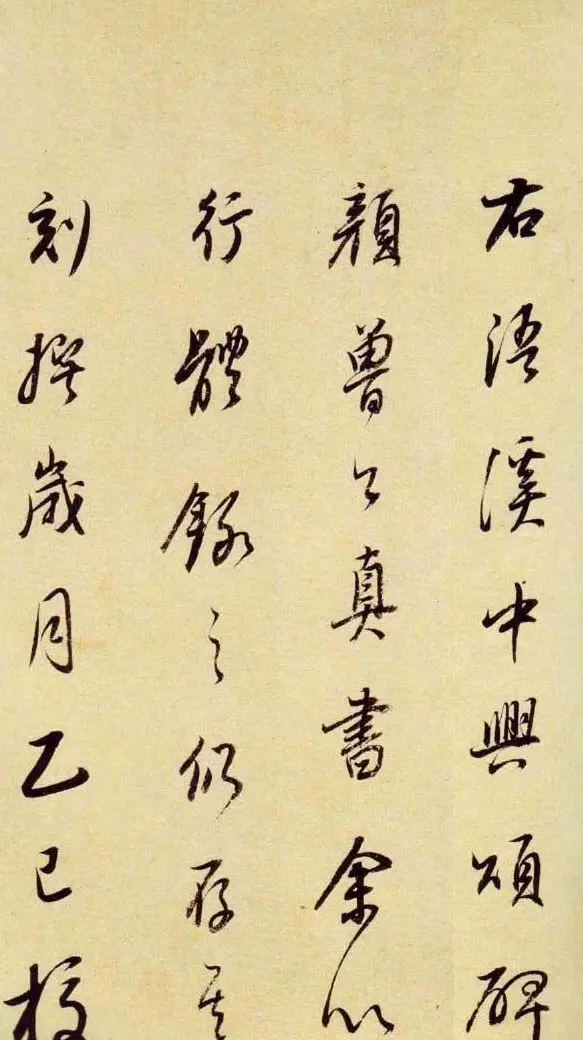 右浯溪中興頌碑
顏魯公真書余以
行體錄之仍存其
刻撰歲月乙巳